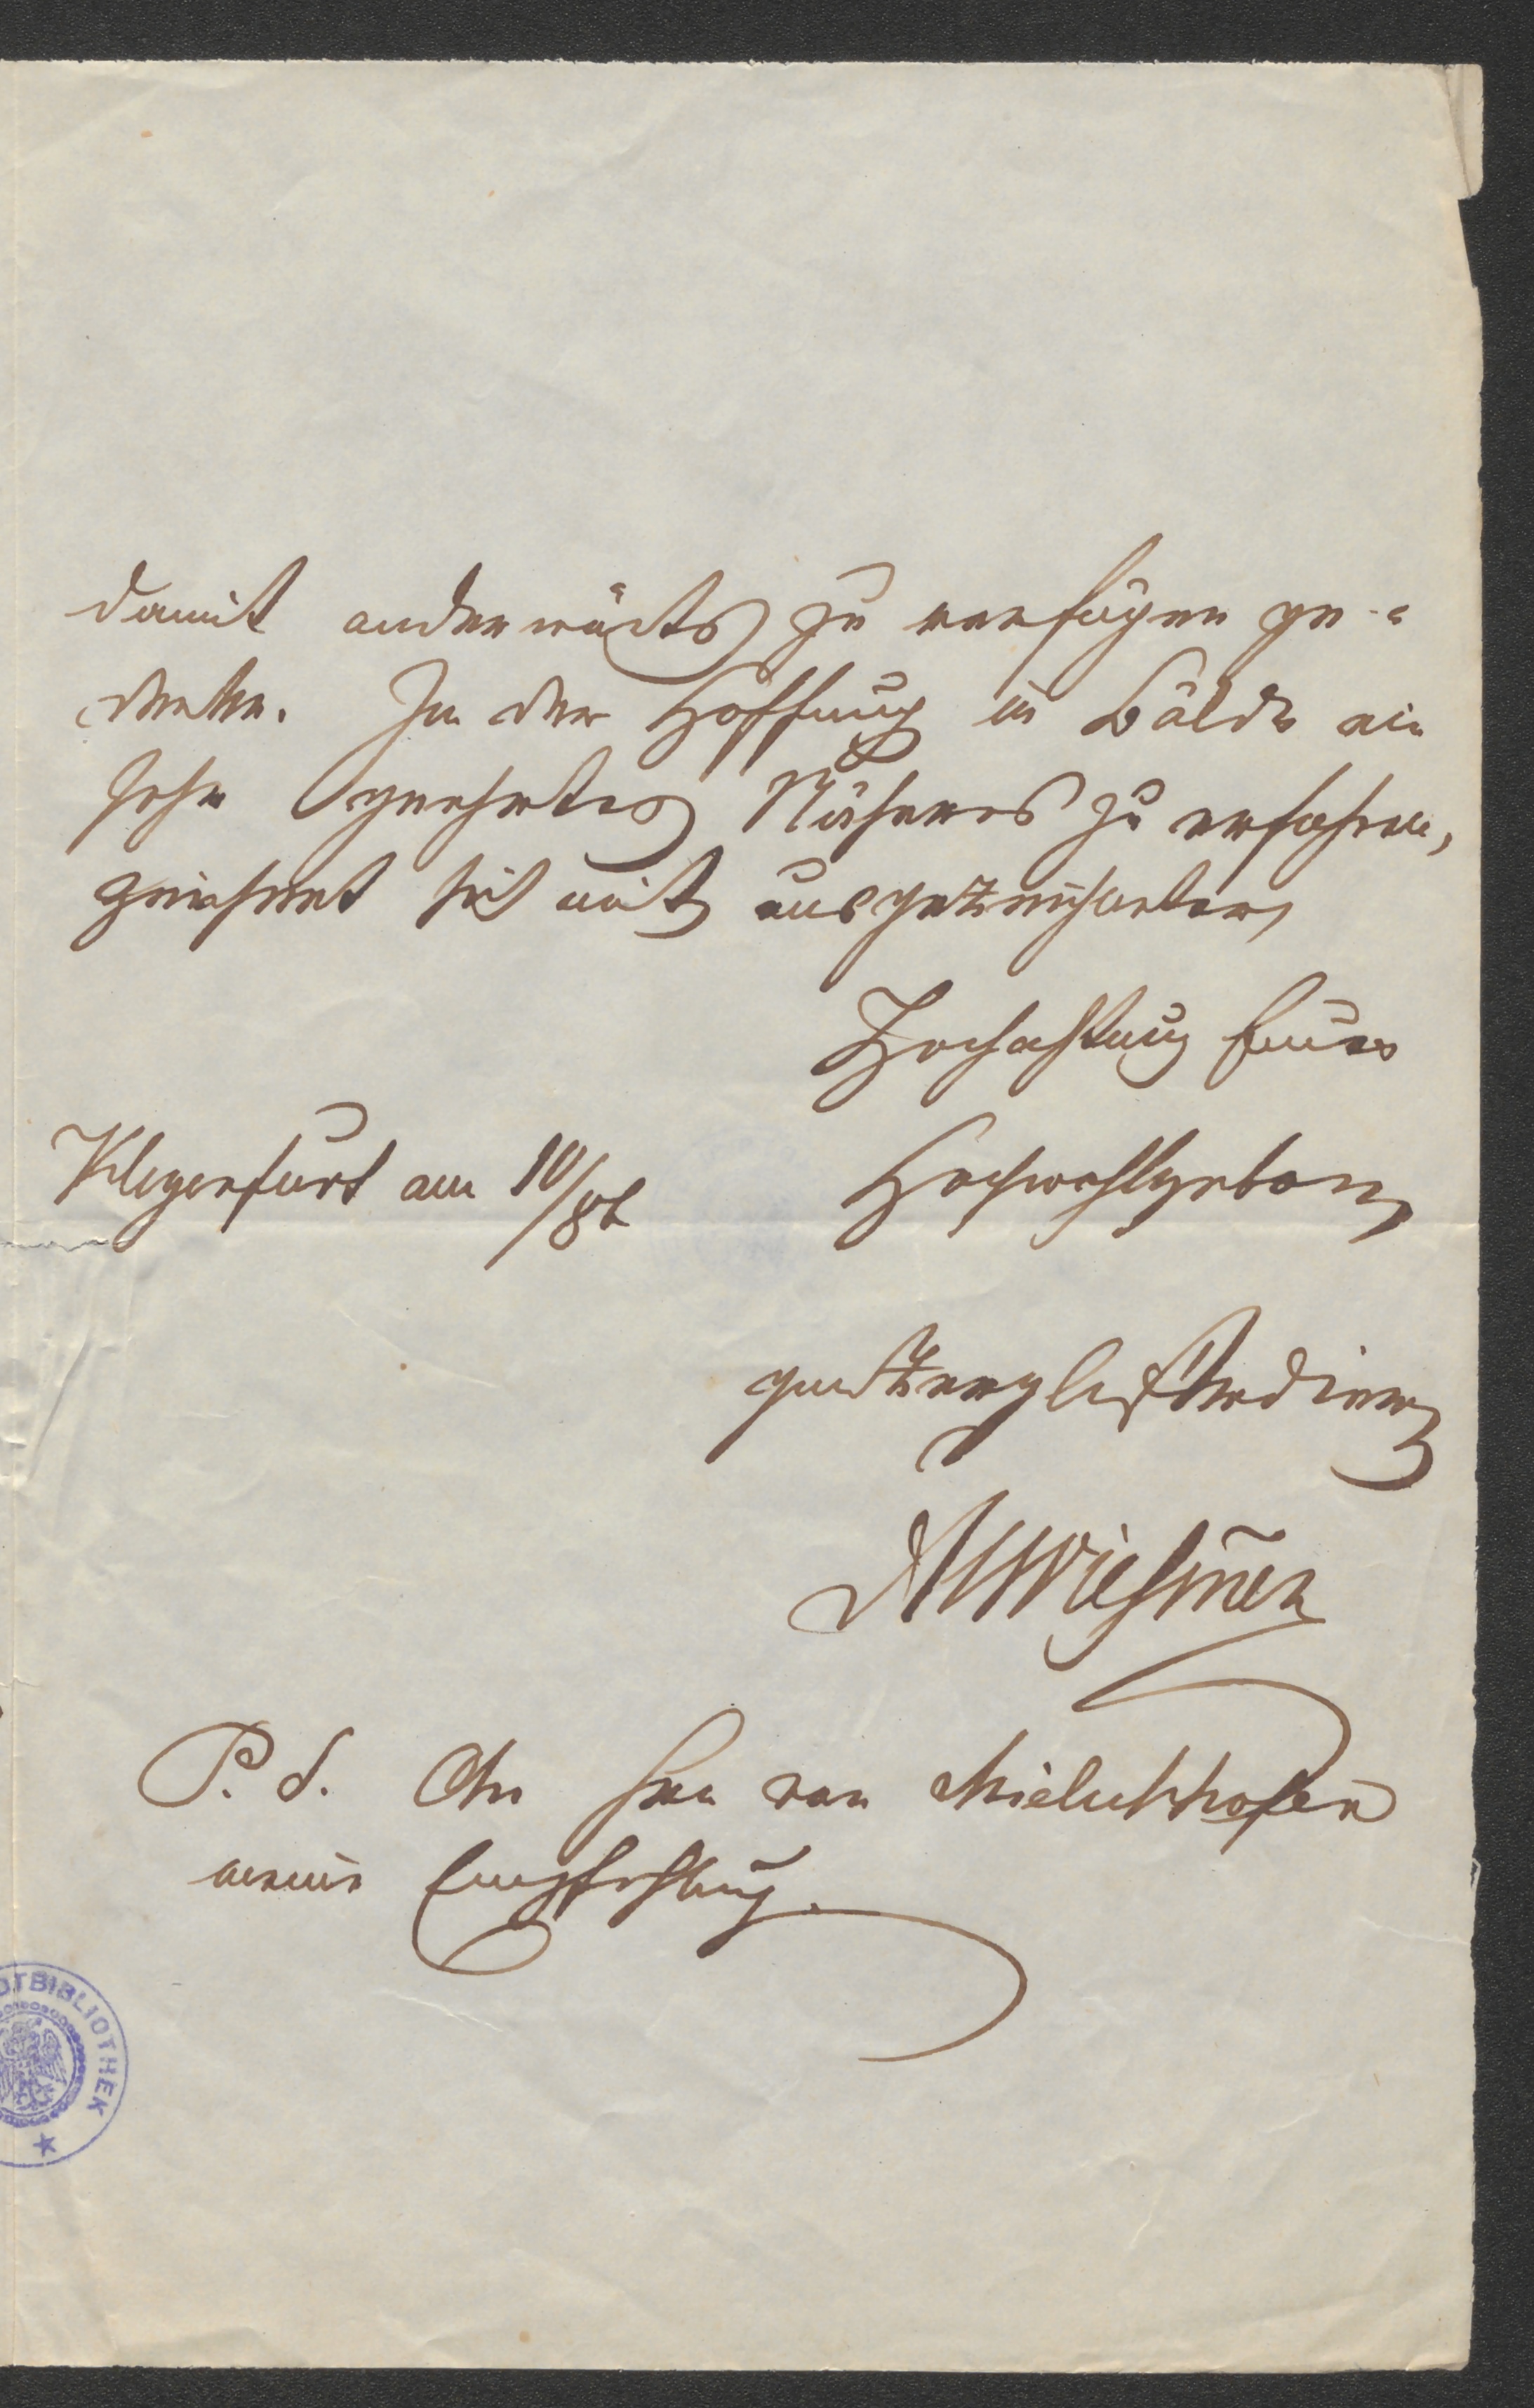 damit anderwärts zu verfügen ge-
denke. In der Hoffnung in Bälde ein
sehr geehrtes Näheres zu erfahren,
zeichnet sich mit ausgezeichneter
Hochachtung Euer
Klagenfurt am 10/86
Hochwohlgeborn
ganz ergebenster Diener
P. S. An Frau von Mielichhofer
meine Empfehlung.
OTBIBLIOTHEK